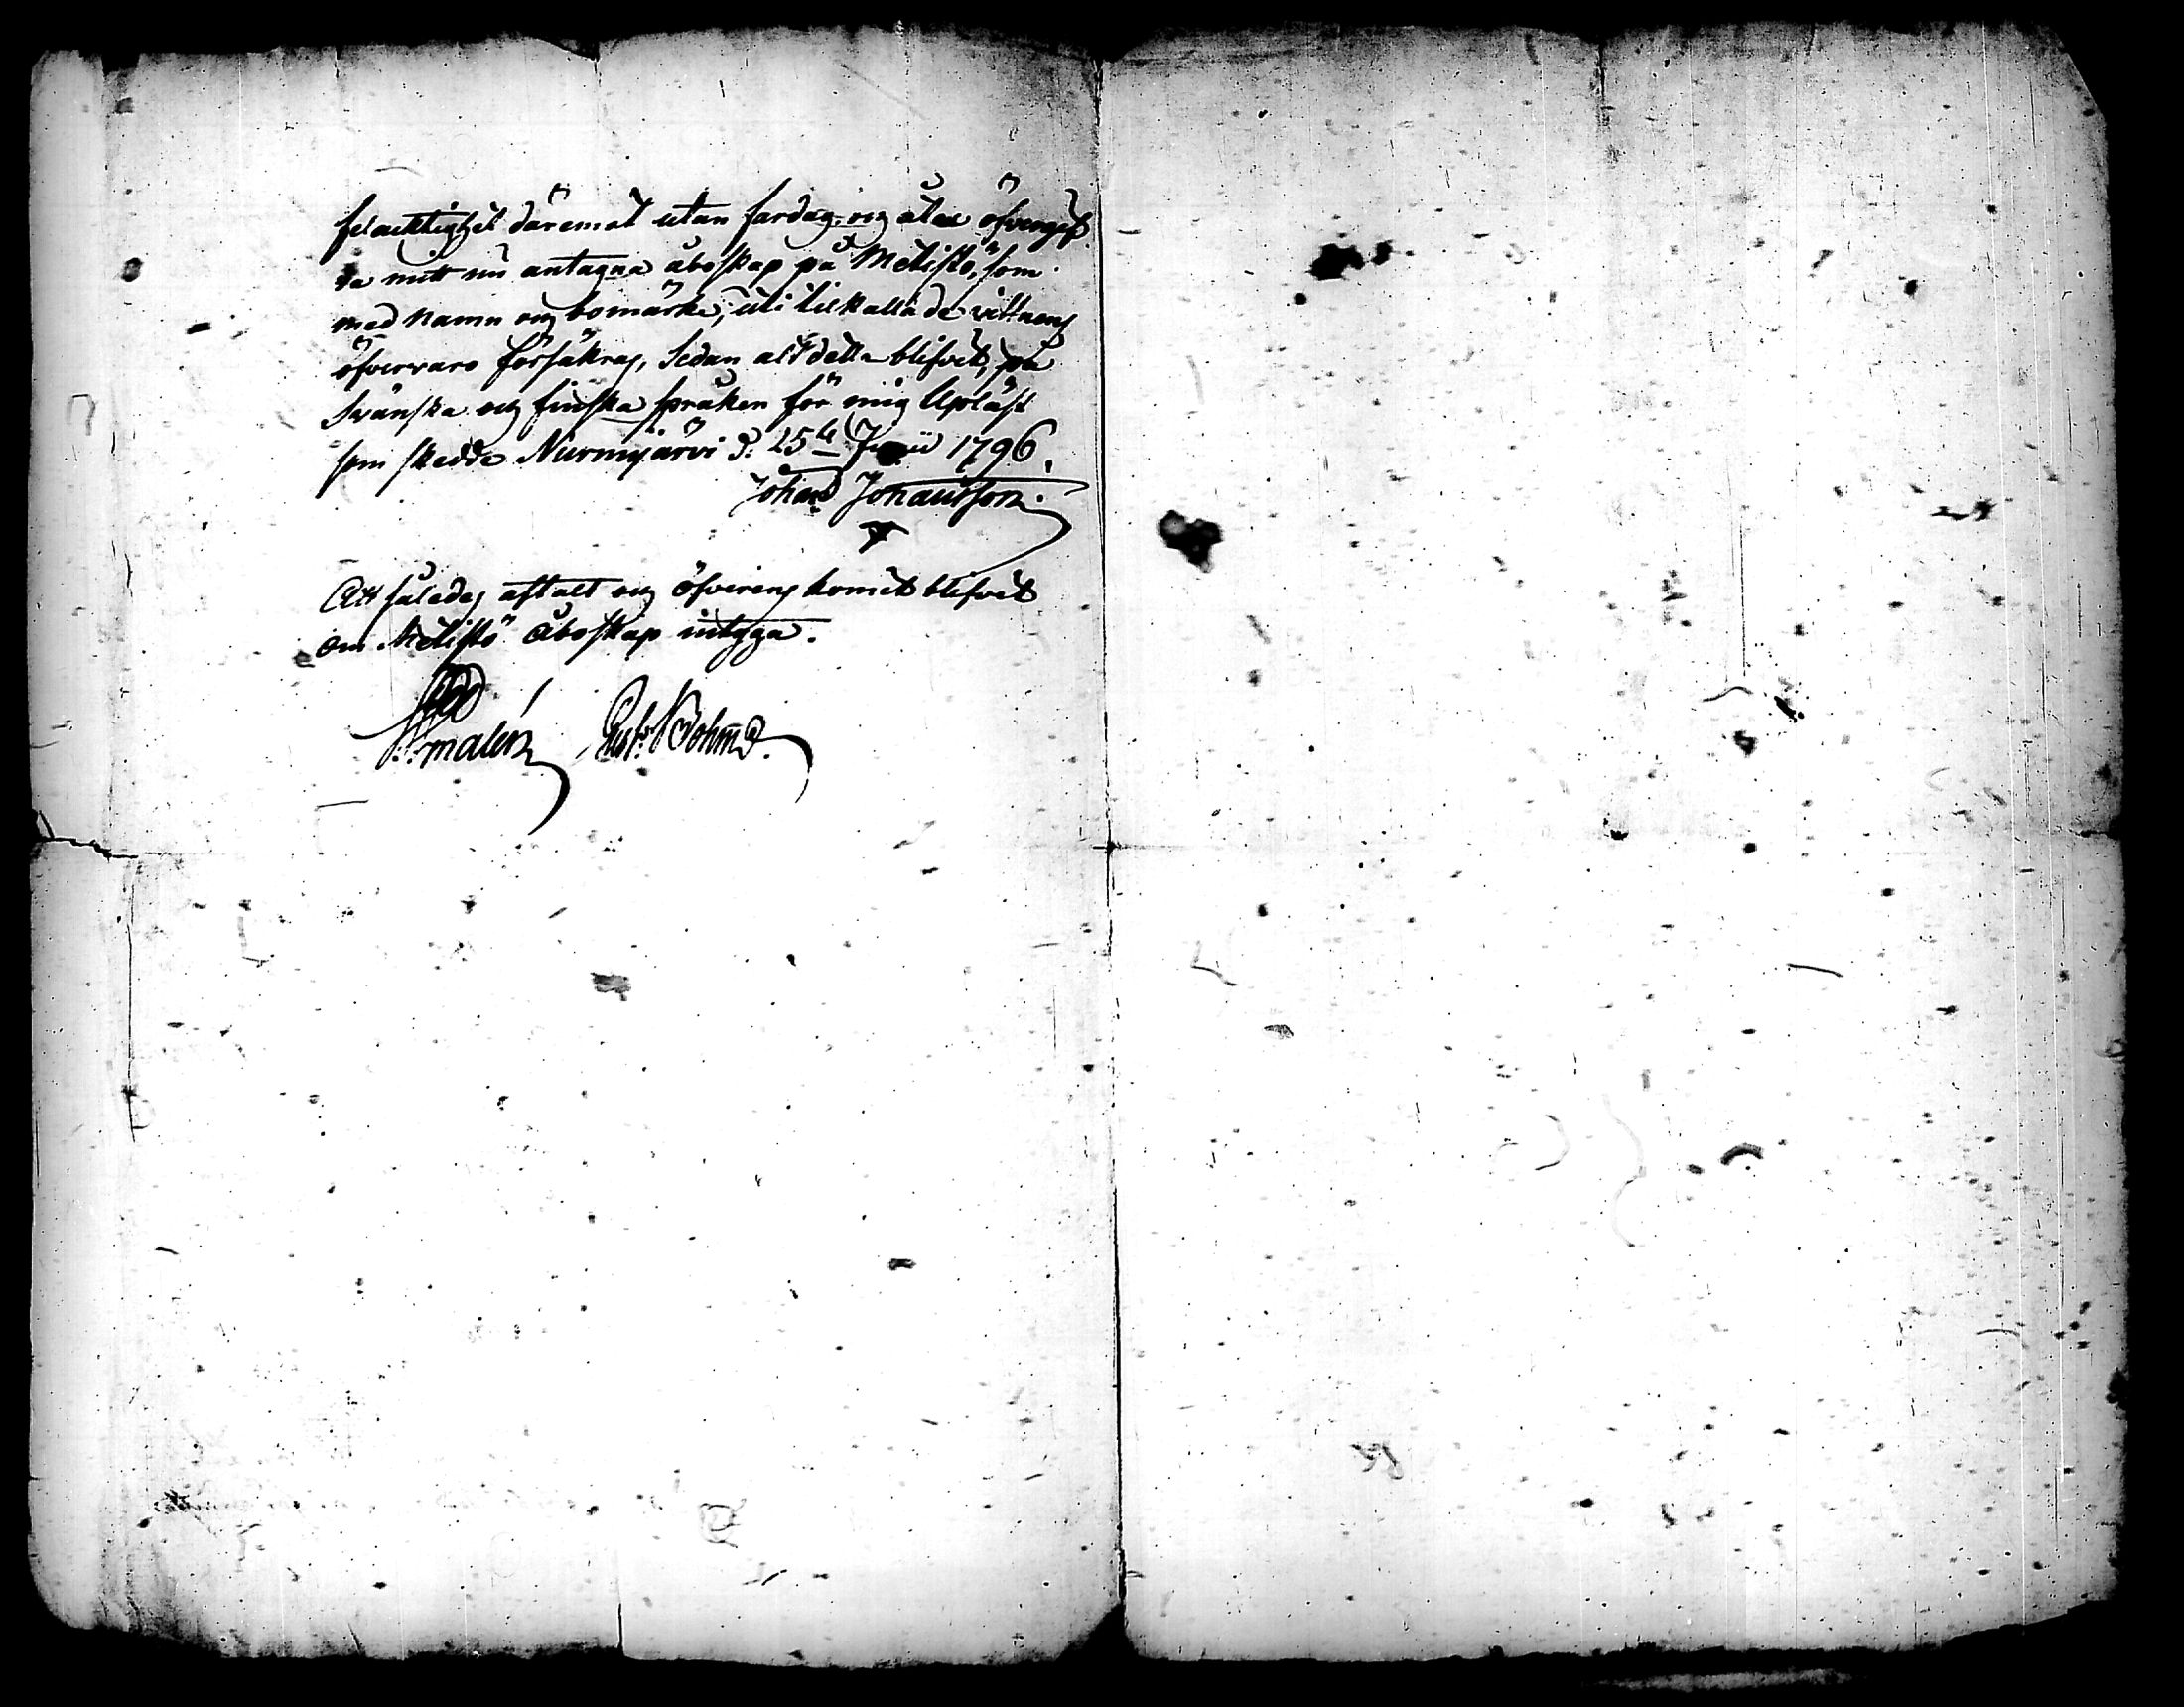 felacktighet däremot utan fardag och åtal öfvergif
va mitt nu antagna åboskap på Metistö, som
med namn och bomärke, uti tilkallade vittnens
öfvervaro försäkras, Sedan alt detta blifvit, på
Svänska och finska språken för mig Upläst
som skedde Nurmijärvi d: 25te Junii 1796.
Johan Johansson.
Att således aftalt och öfverens komit blifvit
om Metistö Åboskap intyga.
malén Gust: Bohm